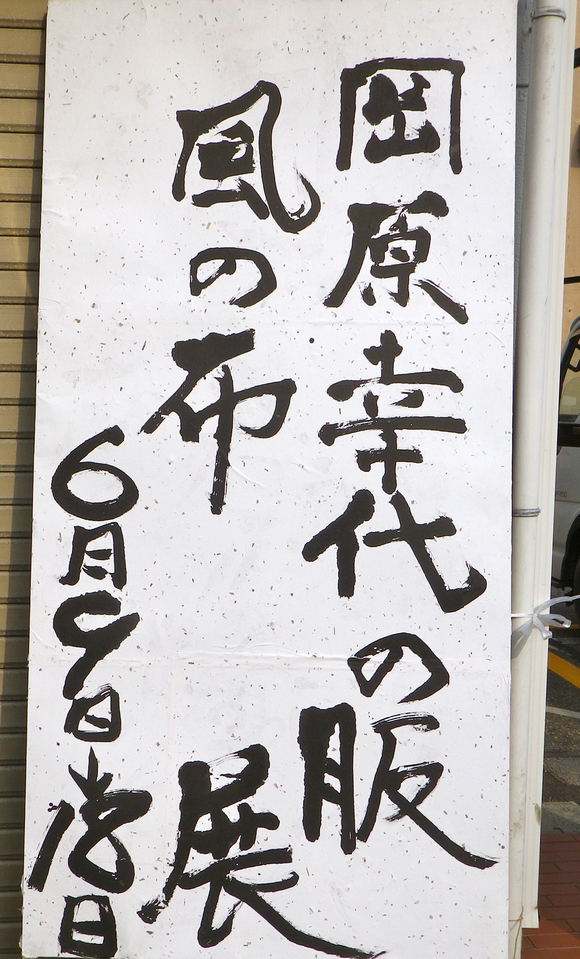 岡原幸代の服
風の布 展
6月9日